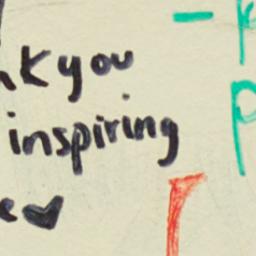 kyou
inspiring
e♥